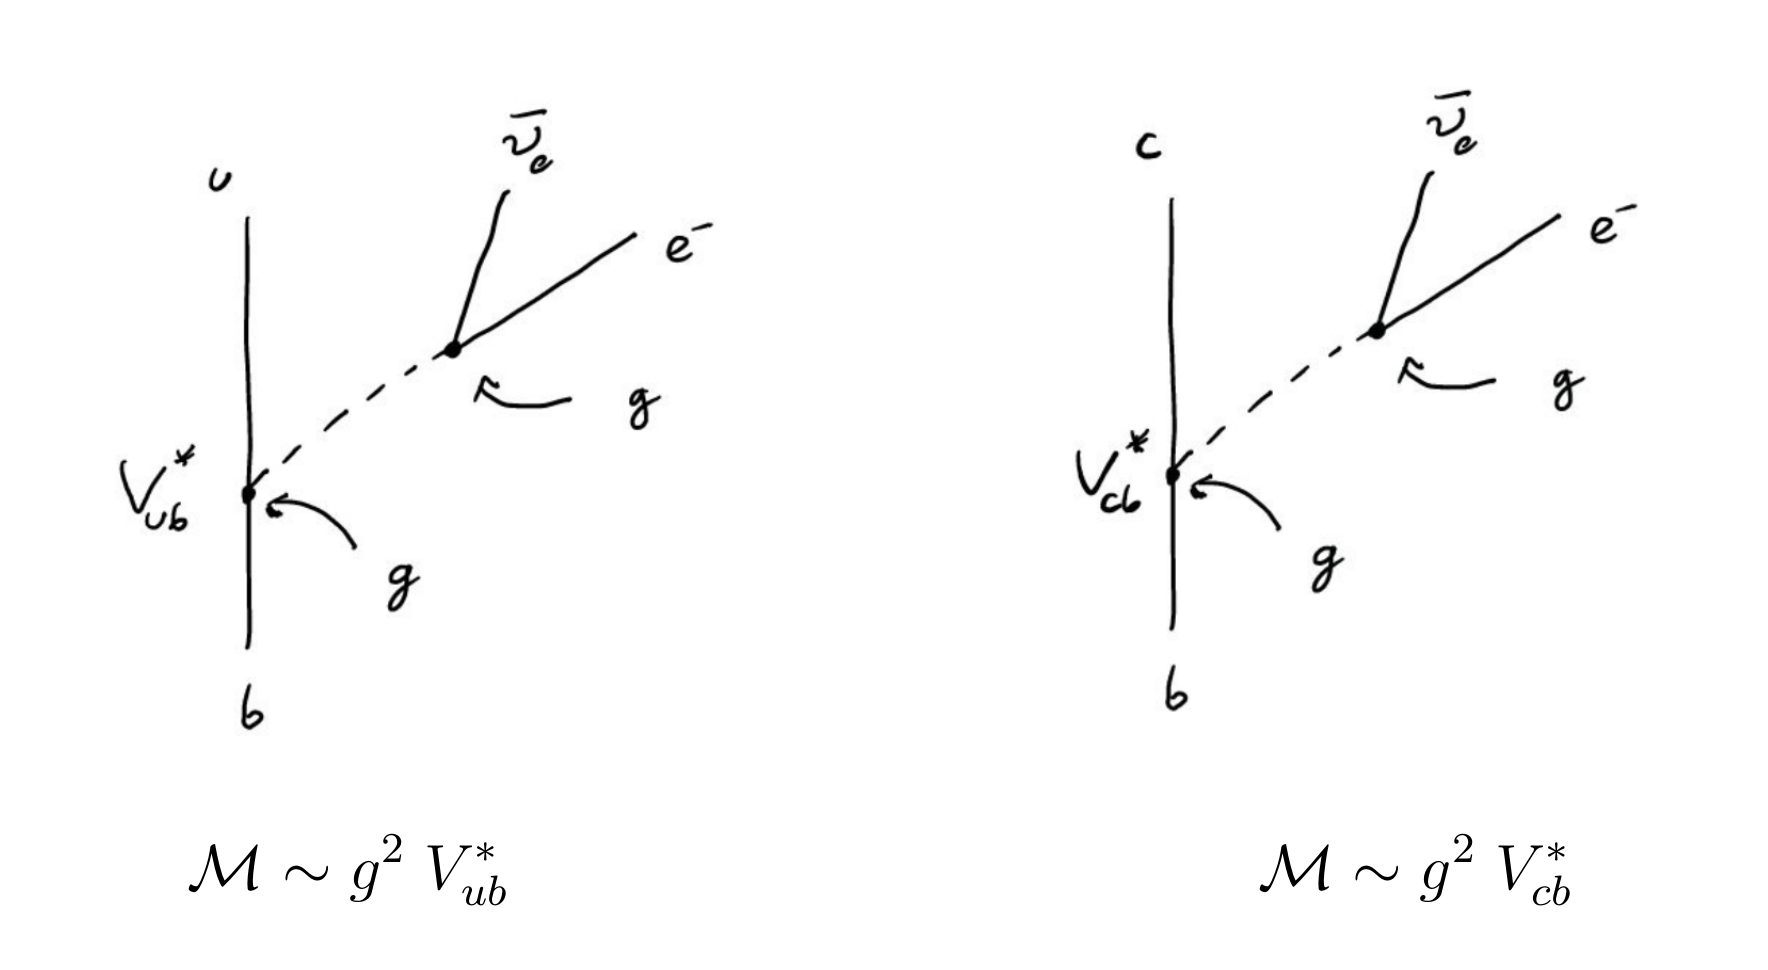 u
ν̄e
e⁻
g
V*ub
g
b
M ~ g² V*ub
c
ν̄e
e⁻
g
V*cb
g
b
M ~ g² V*cb